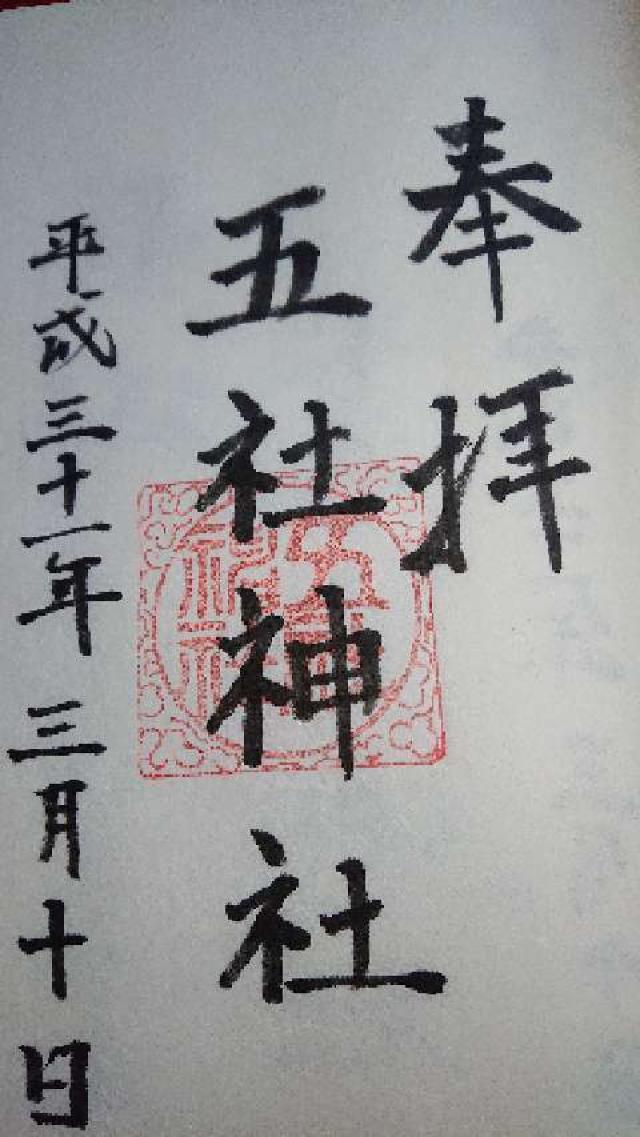 奉拝
五社神社
平成三十一年三月十日